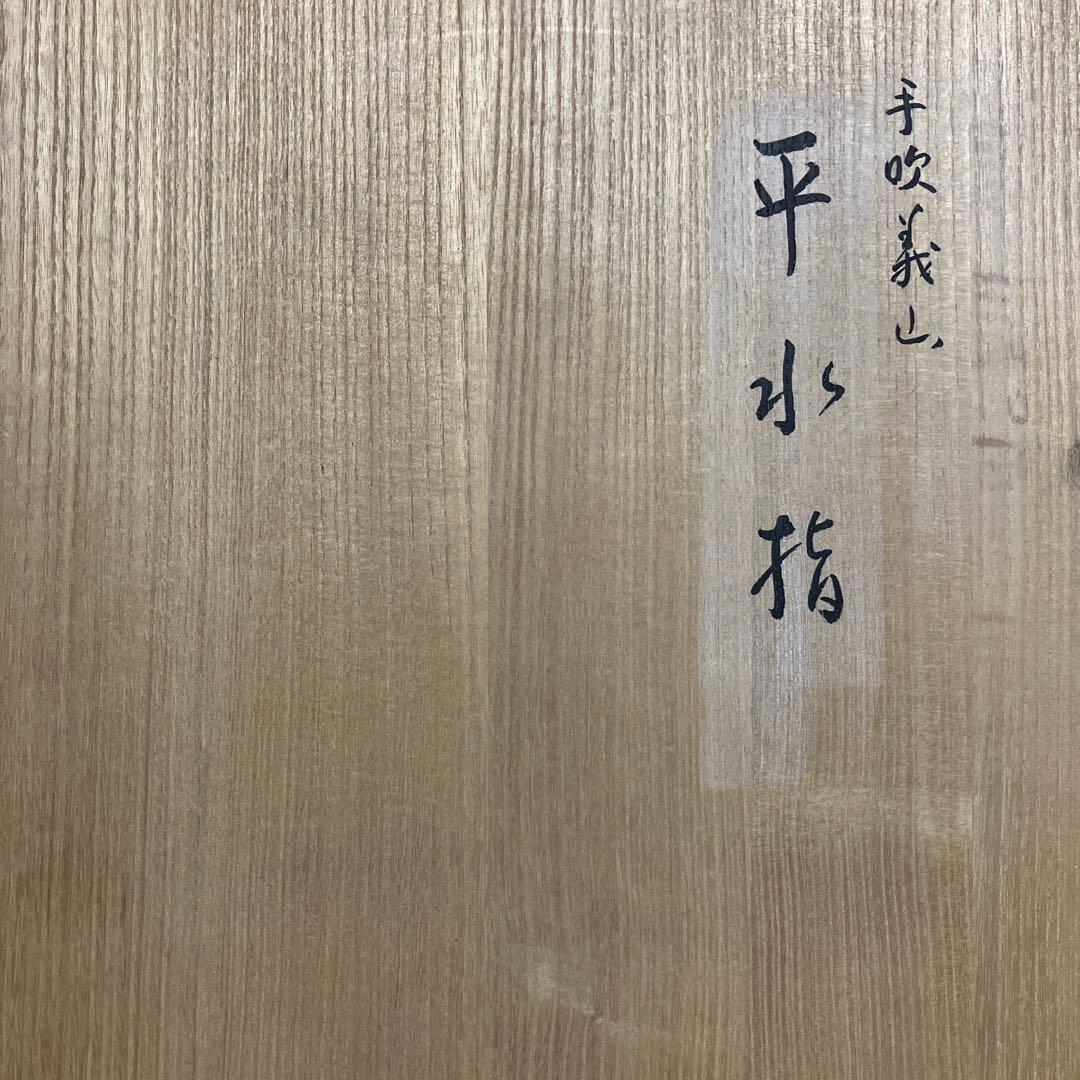 手吹義山
平水指